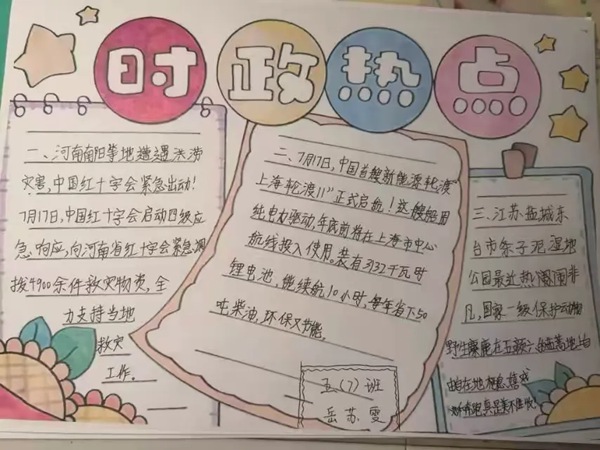 时政热点
一、河南南阳等地遭遇洪涝
灾害,中国红十字会紧急出动!
7月17日,中国红十字会启动四级应
急响应,向河南省红十字会紧急调
拨4900余件救灾物资,全
力支持当地
救灾
工作。
二、7月17日,中国首艘新能源轮渡"
上海轮渡11"正式启航!这艘船因
纯电力驱动,年底前将在上海市中心
航线投入使用。装有3132千瓦时
锂电池,继续航10小时,每年省下50
吨柴油,环保又节能。
三、江苏盐城东
台市条子泥湿地
公园最近热闹非
凡,国家一级保护动物
野生麋鹿在五颜
在地
五(7)班
岳苏雯